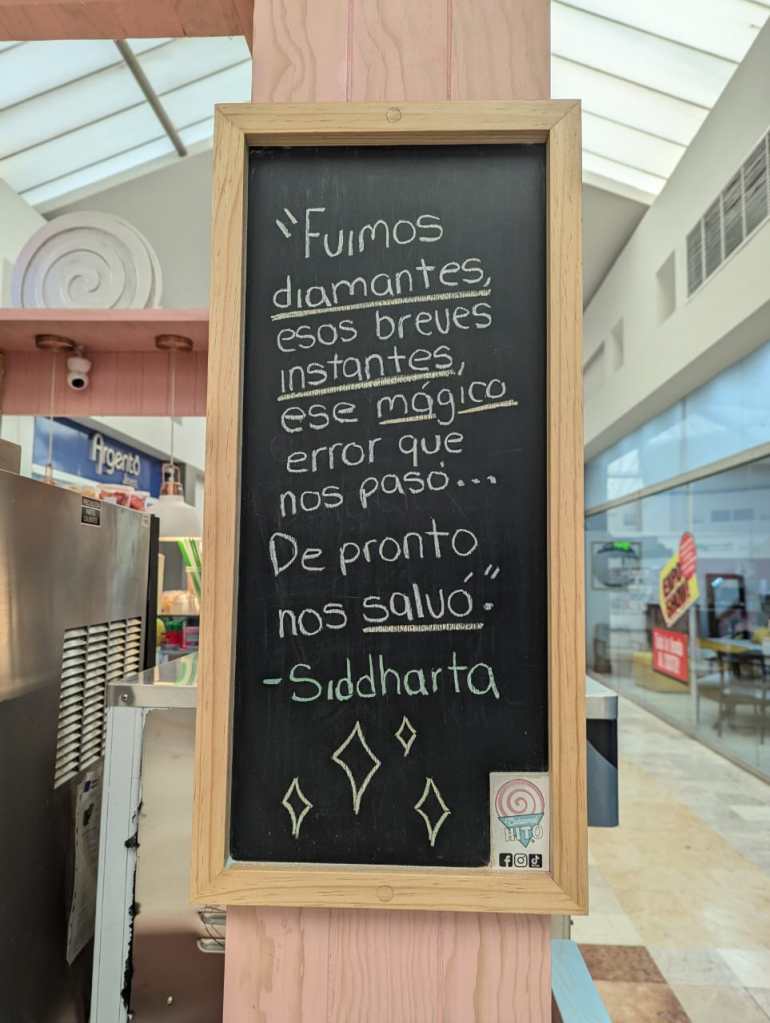 "Fuimos
diamantes,
esos breves
instantes,
ese mágico
error que
nos pasó...
De pronto
nos salvó".
-Siddharta
Argento
HITO